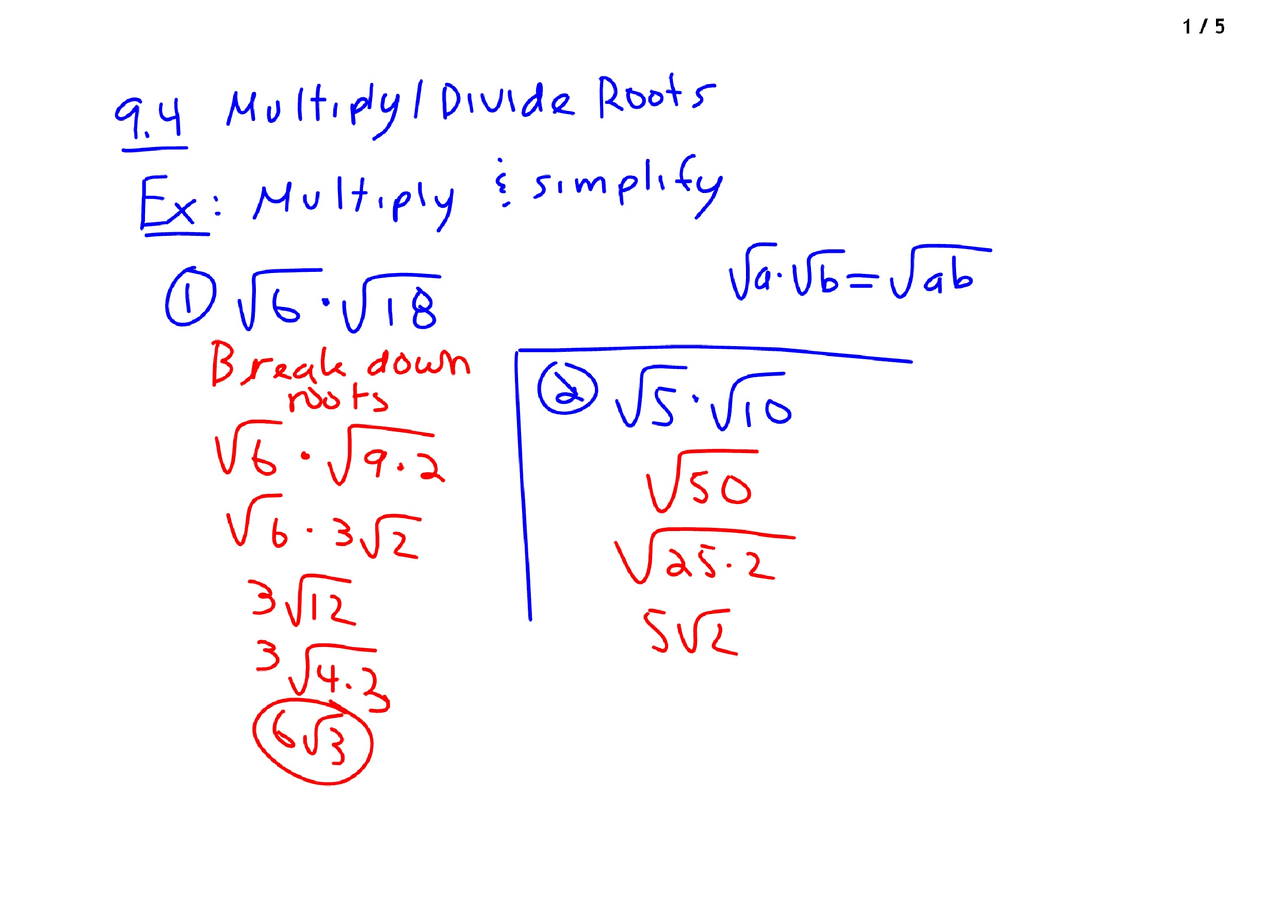 1 / 5
9.4 Multiply/Divide Roots
Ex: Multiply & simplify
√a·√b=√ab
① √6·√18
Break down
roots
√6·√9·2
√6·3√2
3√12
3√4·3
6√3
② √5·√10
√50
√25·2
5√2